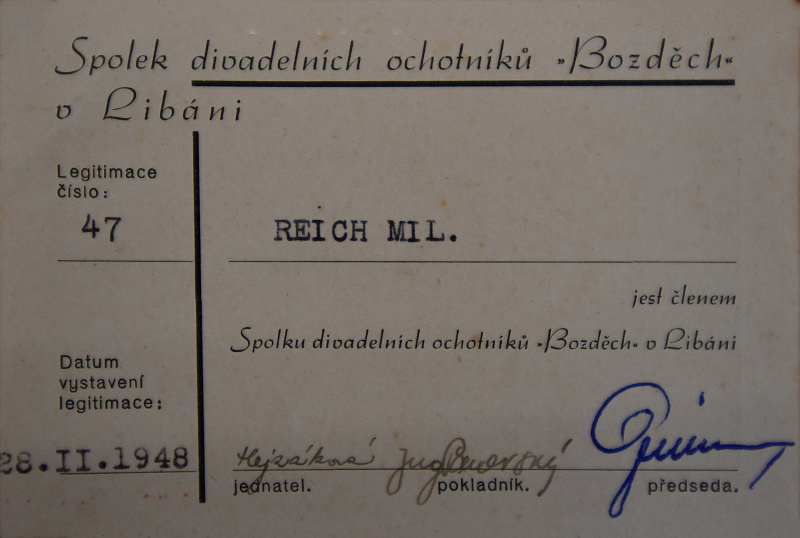 Spolek divadelních ochotníků »Bozděch«
v Libáni
Legitimace
číslo:
47
REICH MIL.
jest členem
Spolku divadelních ochotníků »Bozděch« v Libáni
Datum
vystavení
legitimace:
28.II.1948
Hejzáková
jednatel. pokladník. předseda.